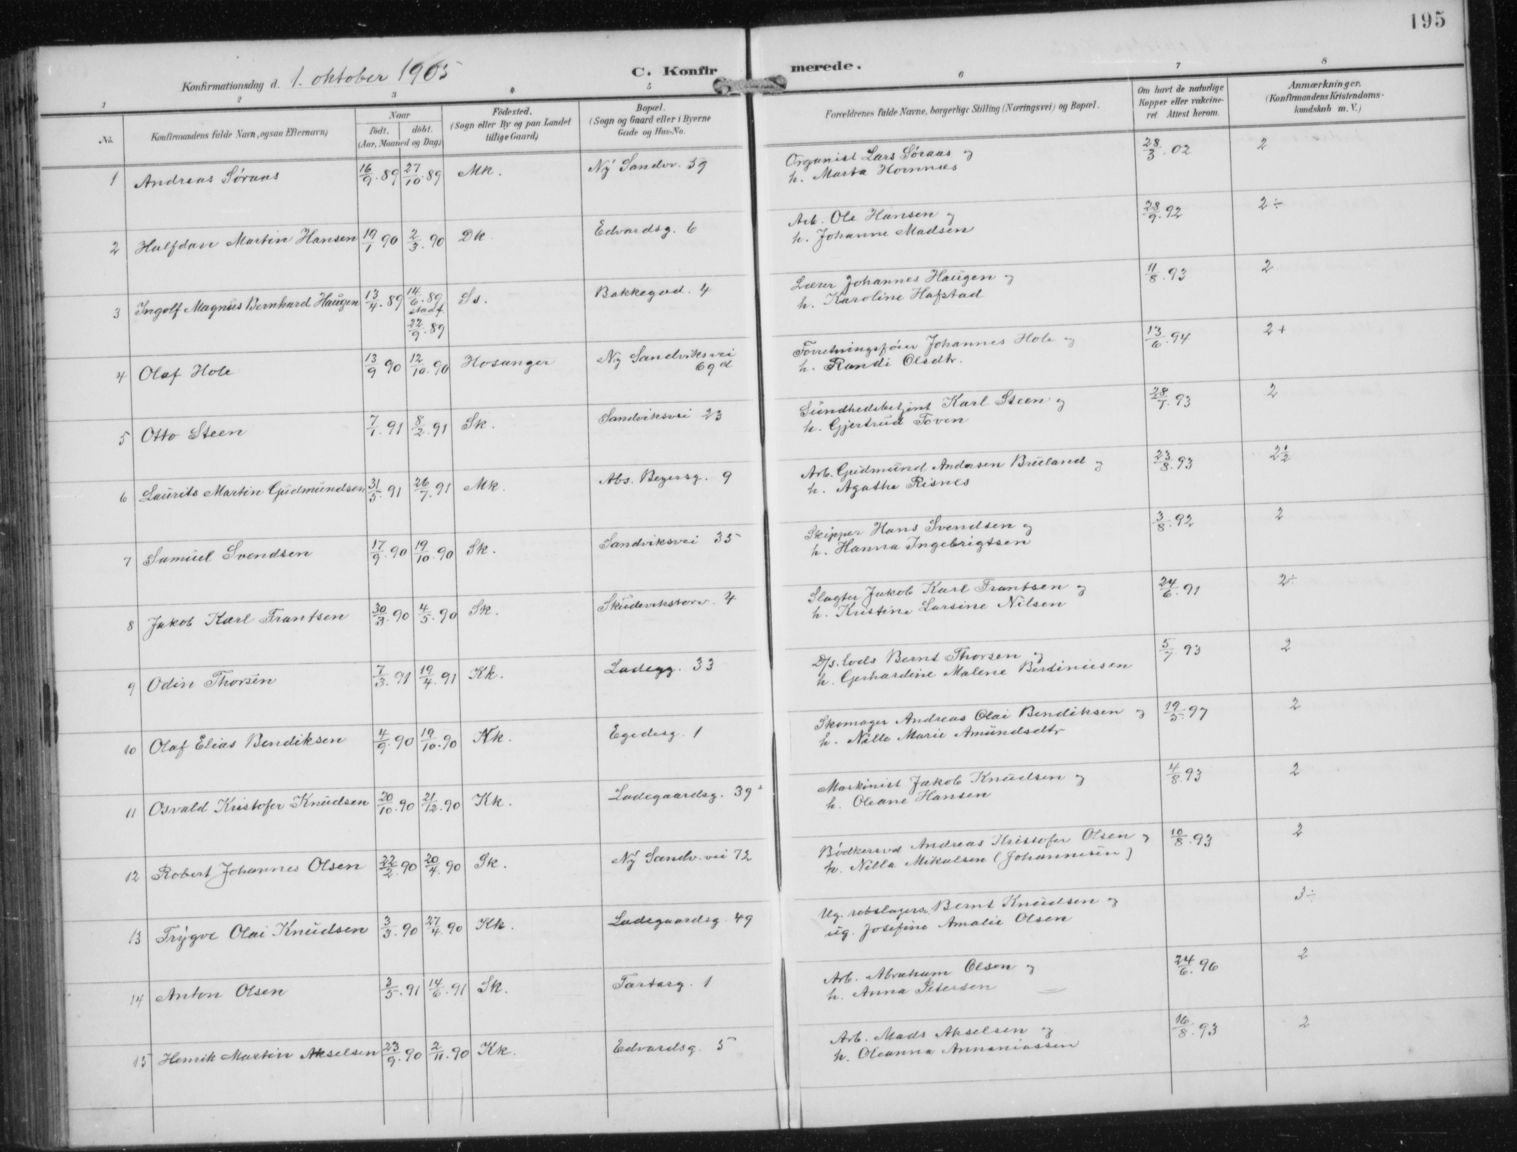 195
Konfirmationsdag d. 1. oktober 1905
C. Konfirmerede.
1 2 3 4 5 6 7 8
No.
Konfirmandens fulde Navn, ogsaa Efternavn)
Naar
født. døbt.
(Aar, Maaned og Dag)
Fødested.
(Sogn eller By og paa Landet
tillige Gaard)
Bopæl.
(Sogn og Gaard eller i Byerne
Gade og Hus-No.
Forældrenes fulde Navne, borgerlige Stilling (Næringsvei) og Bopæl.
Om havt de naturlige
Kopper eller vakcine-
ret Attest herom.
Anmærkninger.
(Konfirmandens Kristendoms-
kundskab m. V.)
1 Andreas Søraas 16/9.89 27/10.89 Mk. Ny Sandv. 59 Organist Lars Søraas og 28/3.02 2
h. Marta Hornnæs
2 Halfdan Martin Hansen 19/1 90 2/3.90 Dk. Edvardsg. 6 Arb. Ole Hansen og 28/9.92 2÷
h. Johanne Madsen
3 Ingolf Magnus Bernhard Haugen 13/4.89 14/6.89 Ss. Bakkegad. 4 Lærer Johannes Haugen og 11/8.93 2
stadf. h. Karoline Hafstad
22/9.89
4 Olaf Hole 13/9 90 12/10.90 Hosanger Ny Sandviksvei Forretningsfører Johannes Hole og 13/6.94 2+
69d h. Randi Olsdtr.
5 Otto Steen 7/1.91 8/2.91 Sk. Sandviksvei 23 Sundhedsbetjent Karl Steen og 28/7.93 2
h. Gjertrud Toven
6 Laurits Martin Gudmundsen 31/5.91 26/7.91 Mk. Abs. Beyersg. 9 Arb. Gudmund Andersen Brueland og 23/8.93 2½
h. Agathe Risnes
7 Samuel Svendsen 17/9.90 19/10.90 Sk. Sandviksvei 35 Skipper Hans Svendsen og 3/8.92 2
h. Hanna Ingebrigtsen
8 Jakob Karl Frantsen 30/3.90 4/5.90 Sk. Skudevikstorv. 4 Slagter Jakob Karl Frantsen og 24/6.91 2÷
h. Kristine Larsine Nilsen
9 Odin Thorsen 7/3.91 19/4.91 Kk. Ladegg. 33 D/s. lods Bernt Thorsen og 5/7 93 2
h. Gerhardine Malene Bertiniusen
10 Olaf Elias Bendiksen 4/9.90 19/10.90 Kk. Egedesg. 1 Skomager Andreas Olai Bendiksen og 19/5.97 2
h. Nille Marie Amundsdtr
11 Osvald Kristofer Knudsen 20/10.90 21/12.90 Kk. Ladegaardsg. 39 Maskinist Jakob Knudsen og 4/8.93 2
h. Oleane Hansen
12 Robert Johannes Olsen 22/2.90 20/4.90 Sk. Ny Sandv. vei 72 Bødkersvd Andreas Kristofer Olsen og 10/8.93 2
h. Nilla Mikalsen (Johannesen)
13 Trygve Olai Knudsen 3/3.90 27/4.90 Kk. Ladegaardsg. 49 Ug. rebslager Bernt Knudsen og 3÷
ug. Josefine Amalie Olsen
14 Anton Olsen 3/5.91 14/6.91 Sk. Tartarg. 1 Arb. Abraham Olsen og 24/6.96 2
h. Anna Petersen
15 Henrik Martin Akselsen 23/9.90 2/11.90 Kk. Edvardsg. 5 Arb. Mads Akselsen og 16/8.93 2
h. Oleanna Annaniassen